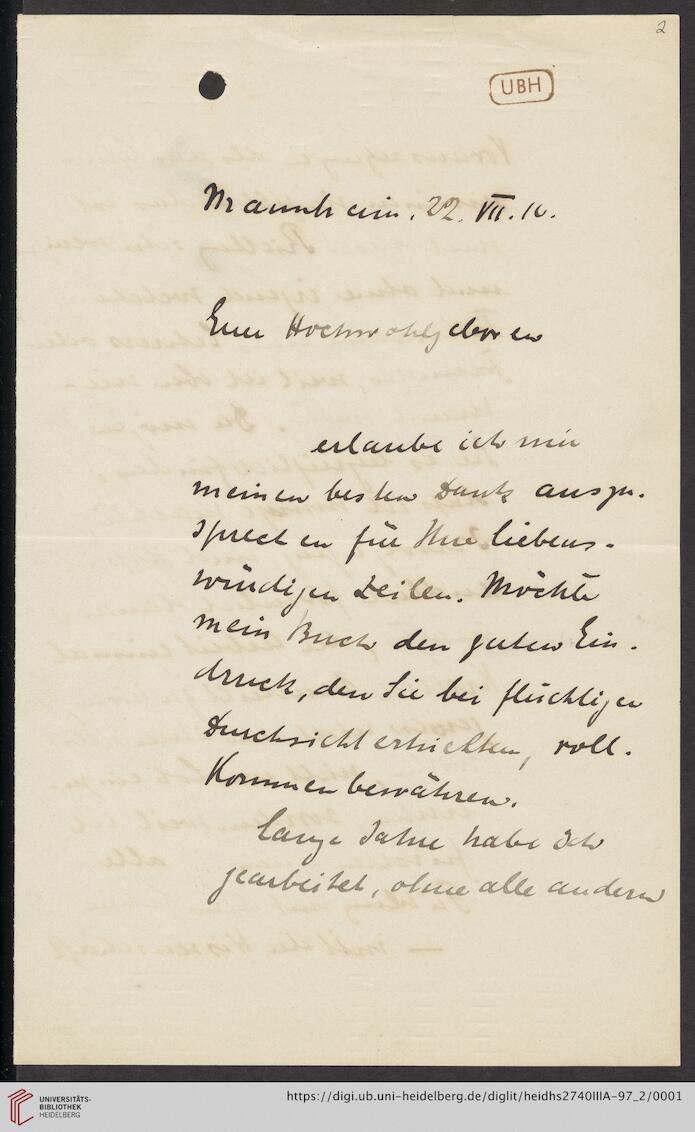 2
UBH
Mannheim, 22. VII. 10.
Euer Hochwohlgeboren
erlaube ich mir
meinen besten Dank auszu-
sprechen für Ihre liebens-
würdigen Zeilen. Möchte
mein Buch den guten Ein-
druck, den Sie bei flüchtiger
Durchsicht erhielten, voll-
kommen bewähren.
Lange Jahre habe ich
gearbeitet, ohne alle andern
UNIVERSITÄTS-
BIBLIOTHEK
HEIDELBERG
https://digi.ub.uni-heidelberg.de/diglit/heidhs2740IIIA-97_2/0001